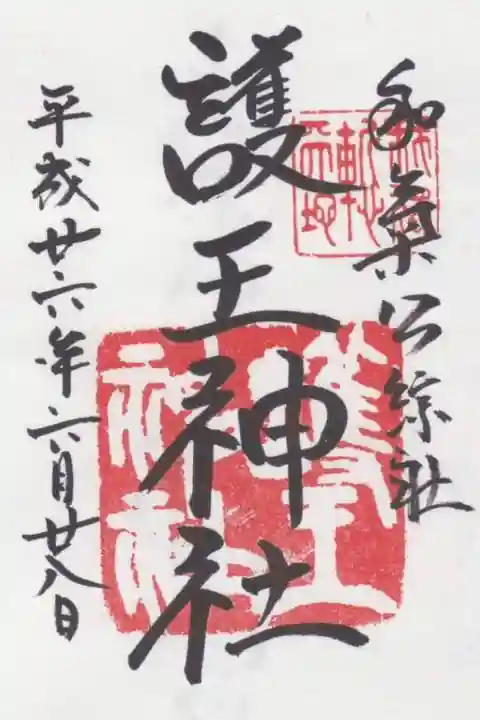 和氣公綜社
護王神社
平成廿六年六月廿八日
護王
神社